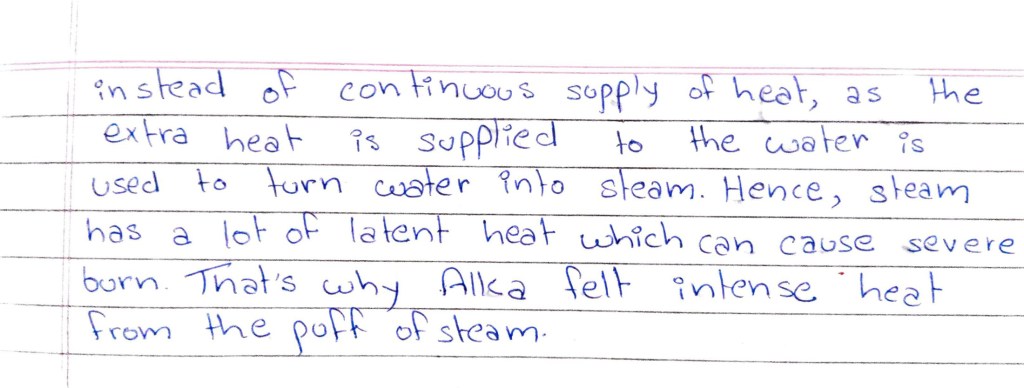 instead of continuous supply of heat, as the
extra heat is supplied to the water is
used to turn water into steam. Hence, steam
has a lot of latent heat which can cause severe
burn. That's why Alka felt intense heat
from the puff of steam.